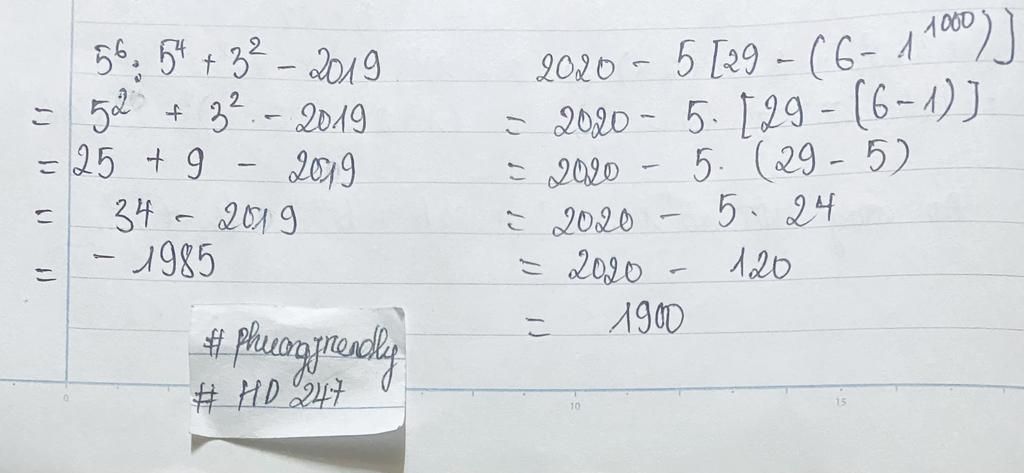 5⁶ : 5⁴ + 3² - 2019
= 5² + 3² - 2019
= 25 + 9 - 2019
= 34 - 2019
= - 1985
2020 - 5 [29 - (6 - 1¹⁰⁰⁰)]
= 2020 - 5. [29 - (6 - 1)]
= 2020 - 5. (29 - 5)
= 2020 - 5. 24
= 2020 - 120
= 1900
# phuongfriendly
# HD 247
0
10
15